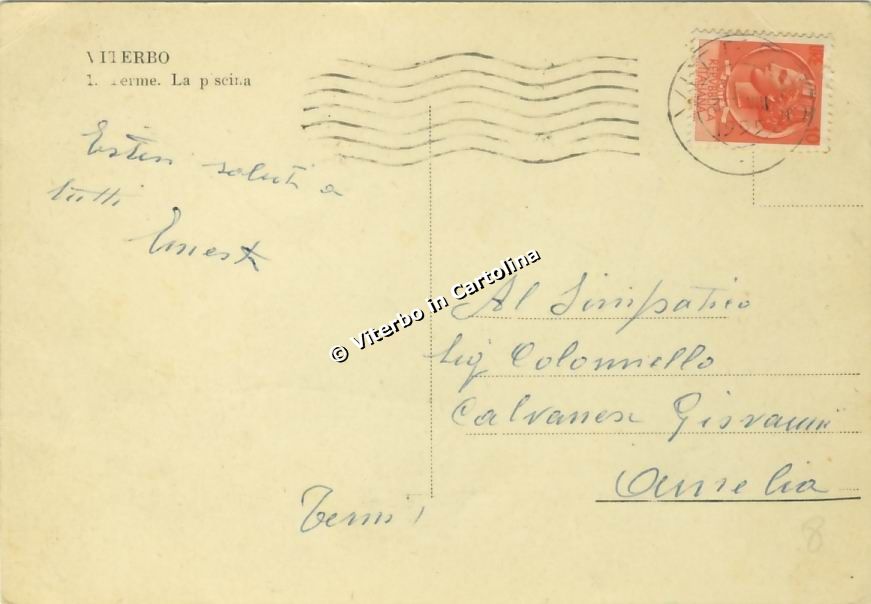 VITERBO
1. Terme. La piscina
saluti a
tutti
Ernest
© Viterbo in Cartolina
Al Simpatico
Sig Colonnello
Calvanese Giovanni
Amelia
Terni
8